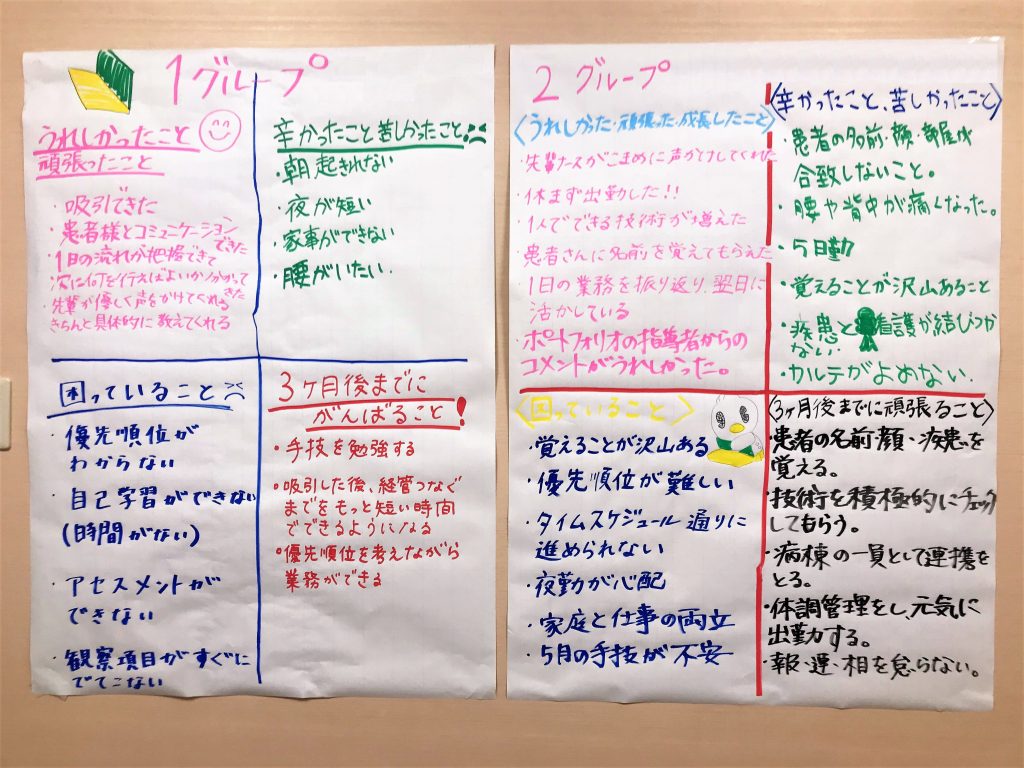 1グループ
うれしかったこと
頑張ったこと
・吸引できた
・患者様とコミュニケーション
できた
・1日の流れが把握できて
次に何を行えばよいか分かって
きた
・先輩が優しく声をかけてくれる
きちんと具体的に教えてくれる
辛かったこと苦しかったこと
・朝起きれない
・夜が短い
・家事ができない
・腰がいたい.
困っていること
・優先順位が
わからない
・自己学習ができない
(時間がない)
・アセスメントが
できない
・観察項目がすぐに
でてこない
3ヶ月後までに
がんばること!
・手技を勉強する
・吸引した後、経管つなぐ
までをもっと短い時間
でできるようになる
・優先順位を考えながら
業務ができる
2グループ
〈うれしかった・頑張った・成長したこと〉
・先輩ナースがこまめに声かけしてくれた
・休まず出勤した!!
・1人でできる技術が増えた
・患者さんに名前を覚えてもらえた
・1日の業務を振り返り、翌日に
活かしている
・ポートフォリオの指導者からの
コメントがうれしかった。
〈辛かったこと、苦しかったこと〉
・患者の名前・顔・部屋が
合致しないこと。
・腰や背中が痛くなった。
・5日勤
・覚えることが沢山あること
・疾患と看護が結びつか
ない.
・カルテがよめない.
〈困っていること〉
・覚えることが沢山ある
・優先順位が難しい
・タイムスケジュール通りに
進められない
・夜勤が心配
・家庭と仕事の両立
・5月の手技が不安
〈3ヶ月後までに頑張ること〉
・患者の名前顔・疾患を
覚える。
・技術を積極的にチェック
してもらう。
・病棟の一員として連携を
とる。
・体調管理をし、元気に
出勤する。
・報・連・相を怠らない。